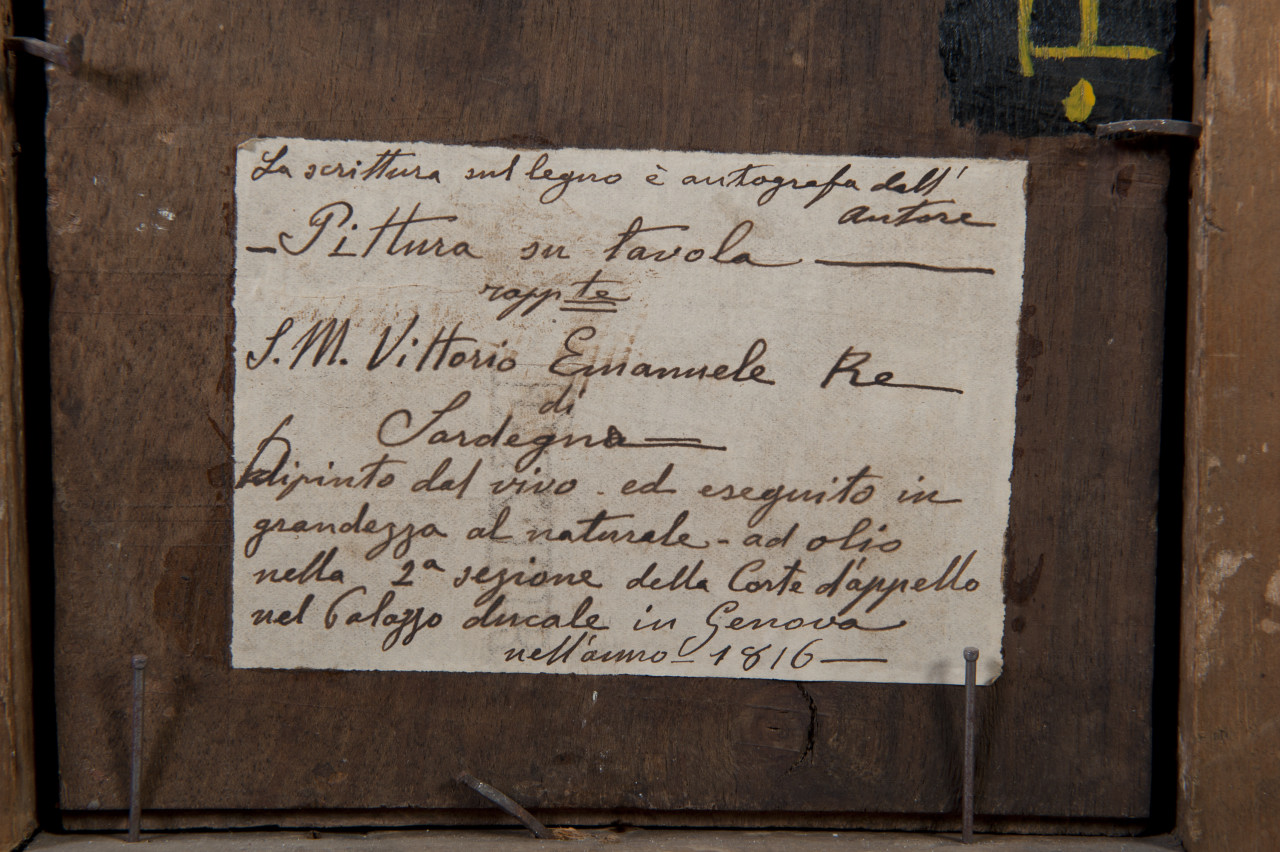 La scrittura sul legno è autografa dall'
autore
- Pittura su tavola —
rappte
S. M. Vittorio Emanuele Re
di
Sardegna
dipinto dal vivo - ed eseguito in
grandezza al naturale - ad olio
nella 2a sezione della Corte d'appello
nel Palazzo ducale in Genova
nell'anno - 1816 —